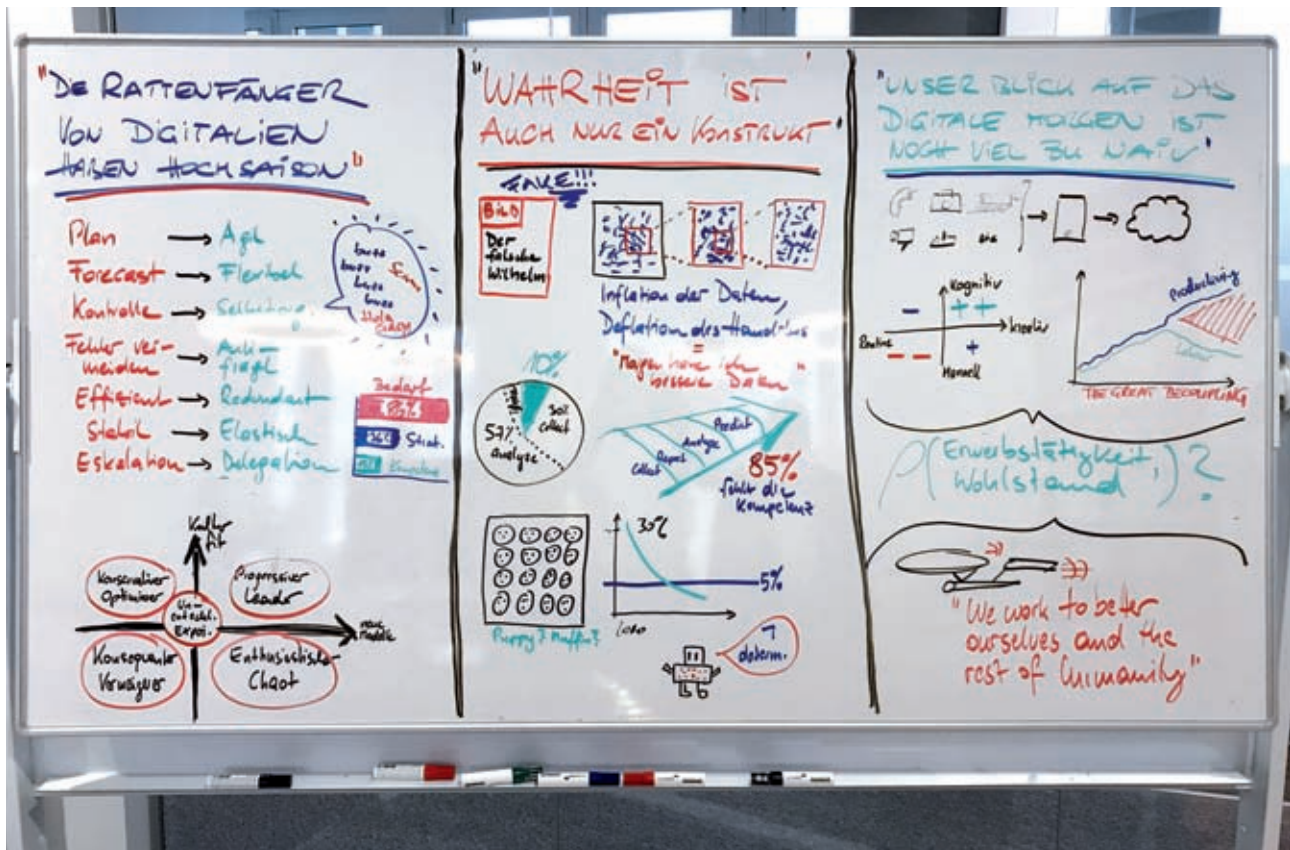 "DIE RATTENFÄNGER
VON DIGITALIEN
HABEN HOCHSAISON"
Plan → Agil
Forecast → Flexibel
Kontrolle →
Fehler ver-
meiden → Anti-
fragil
Effizient → Redundant
Stabil → Elastisch
Eskalation → Delegation
buzz
buzz
buzz
buzz
Bedarf
Strat.
Kultur
fit
Konservativer
Optimierer
Progressiver
Leader
neue
Modelle
Konsequenter
Verweigerer
Enthusiastischer
Chaot
"WAHRHEIT IST
AUCH NUR EIN KONSTRUKT"
FAKE!!!
BILD
Der
falsche
Wilhelm
Inflation der Daten,
Deflation des Handelns
=
"Morgen habe ich
bessere Daten"
10%
Soll
collect
57%
analyze
Collect
Report
Analyze
Predict
85%
fehlt die
Kompetenz
Puppy? Muffin?
30%
5%
¬
determ.
"UNSER BLICK AUF DAS
DIGITALE MORGEN IST
NOCH VIEL ZU NAIV"
Kognitiv
- ++
Routine
kreativ
-- +
Manuell
Productivity
Labour
THE GREAT DECOUPLING
ρ(Erwerbstätigkeit,
Wohlstand)?
"We work to better
ourselves and the
rest of humanity"